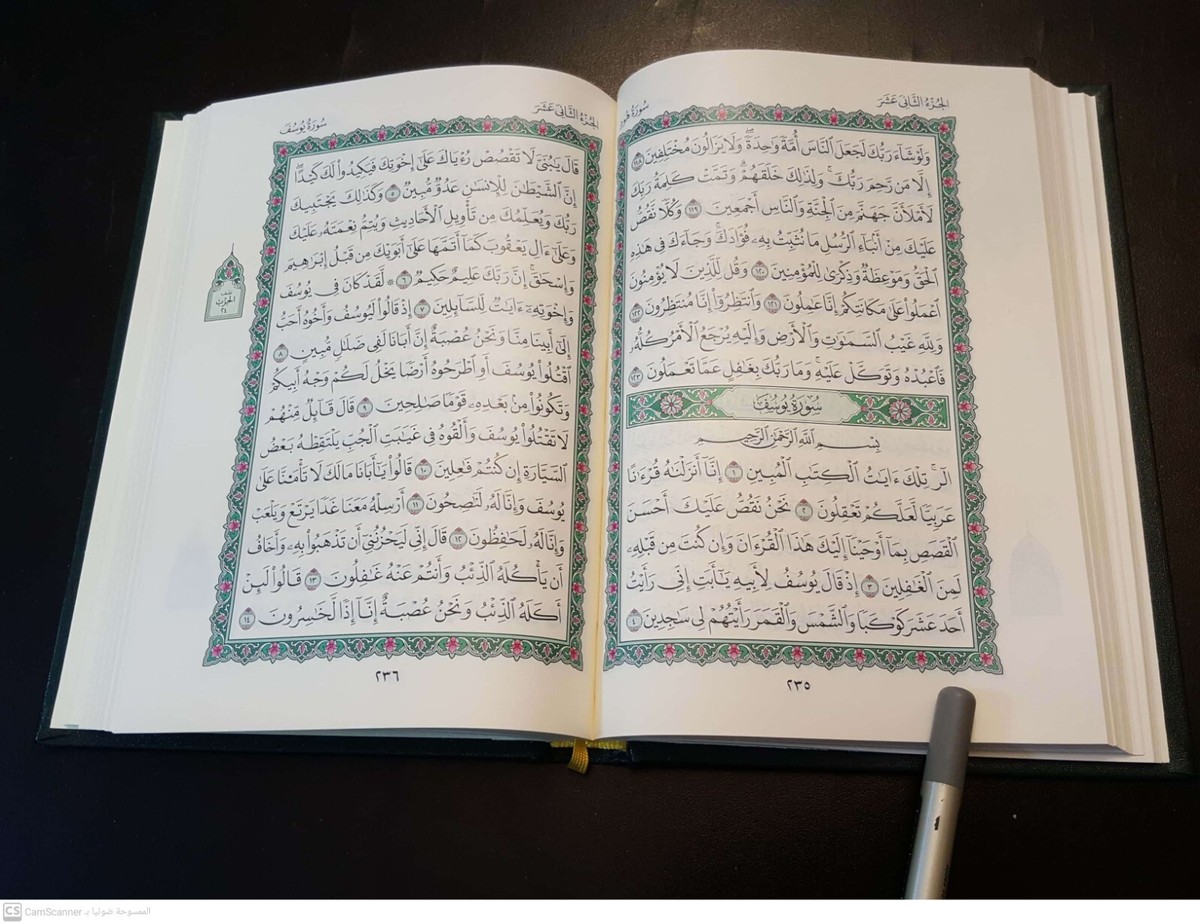 الجُزْءُ الثَّانِي عَشَرَ
سُورَةُ هُودٍ
وَلَوْ شَآءَ رَبُّكَ لَجَعَلَ ٱلنَّاسَ أُمَّةً وَٰحِدَةً ۖ وَلَا يَزَالُونَ مُخْتَلِفِينَ ١١٨
إِلَّا مَن رَّحِمَ رَبُّكَ ۚ وَلِذَٰلِكَ خَلَقَهُمْ ۗ وَتَمَّتْ كَلِمَةُ رَبِّكَ
لَأَمْلَأَنَّ جَهَنَّمَ مِنَ ٱلْجِنَّةِ وَٱلنَّاسِ أَجْمَعِينَ ١١٩ وَكُلًّا نَّقُصُّ
عَلَيْكَ مِنْ أَنۢبَآءِ ٱلرُّسُلِ مَا نُثَبِّتُ بِهِۦ فُؤَادَكَ ۚ وَجَآءَكَ فِى هَٰذِهِ
ٱلْحَقُّ وَمَوْعِظَةٌ وَذِكْرَىٰ لِلْمُؤْمِنِينَ ١٢٠ وَقُل لِّلَّذِينَ لَا يُؤْمِنُونَ
ٱعْمَلُوا۟ عَلَىٰ مَكَانَتِكُمْ إِنَّا عَٰمِلُونَ ١٢١ وَٱنتَظِرُوٓا۟ إِنَّا مُنتَظِرُونَ ١٢٢
وَلِلَّهِ غَيْبُ ٱلسَّمَٰوَٰتِ وَٱلْأَرْضِ وَإِلَيْهِ يُرْجَعُ ٱلْأَمْرُ كُلُّهُۥ
فَٱعْبُدْهُ وَتَوَكَّلْ عَلَيْهِ ۚ وَمَا رَبُّكَ بِغَٰفِلٍ عَمَّا تَعْمَلُونَ ١٢٣
سُورَةُ يُوسُفَ
بِسْمِ ٱللَّهِ ٱلرَّحْمَٰنِ ٱلرَّحِيمِ
الٓر ۚ تِلْكَ ءَايَٰتُ ٱلْكِتَٰبِ ٱلْمُبِينِ ١ إِنَّآ أَنزَلْنَٰهُ قُرْءَٰنًا
عَرَبِيًّا لَّعَلَّكُمْ تَعْقِلُونَ ٢ نَحْنُ نَقُصُّ عَلَيْكَ أَحْسَنَ
ٱلْقَصَصِ بِمَآ أَوْحَيْنَآ إِلَيْكَ هَٰذَا ٱلْقُرْءَانَ وَإِن كُنتَ مِن قَبْلِهِۦ
لَمِنَ ٱلْغَٰفِلِينَ ٣ إِذْ قَالَ يُوسُفُ لِأَبِيهِ يَٰٓأَبَتِ إِنِّى رَأَيْتُ
أَحَدَ عَشَرَ كَوْكَبًا وَٱلشَّمْسَ وَٱلْقَمَرَ رَأَيْتُهُمْ لِى سَٰجِدِينَ ٤
٢٣٥
الجُزْءُ الثَّانِي عَشَرَ
سُورَةُ يُوسُفَ
قَالَ يَٰبُنَىَّ لَا تَقْصُصْ رُءْيَاكَ عَلَىٰٓ إِخْوَتِكَ فَيَكِيدُوا۟ لَكَ كَيْدًا ۖ
إِنَّ ٱلشَّيْطَٰنَ لِلْإِنسَٰنِ عَدُوٌّ مُّبِينٌ ٥ وَكَذَٰلِكَ يَجْتَبِيكَ
رَبُّكَ وَيُعَلِّمُكَ مِن تَأْوِيلِ ٱلْأَحَادِيثِ وَيُتِمُّ نِعْمَتَهُۥ عَلَيْكَ
وَعَلَىٰٓ ءَالِ يَعْقُوبَ كَمَآ أَتَمَّهَا عَلَىٰٓ أَبَوَيْكَ مِن قَبْلُ إِبْرَٰهِيمَ
وَإِسْحَٰقَ ۚ إِنَّ رَبَّكَ عَلِيمٌ حَكِيمٌ ٦ لَّقَدْ كَانَ فِى يُوسُفَ
وَإِخْوَتِهِۦٓ ءَايَٰتٌ لِّلسَّآئِلِينَ ٧ إِذْ قَالُوا۟ لَيُوسُفُ وَأَخُوهُ أَحَبُّ
إِلَىٰٓ أَبِينَا مِنَّا وَنَحْنُ عُصْبَةٌ إِنَّ أَبَانَا لَفِى ضَلَٰلٍ مُّبِينٍ ٨
ٱقْتُلُوا۟ يُوسُفَ أَوِ ٱطْرَحُوهُ أَرْضًا يَخْلُ لَكُمْ وَجْهُ أَبِيكُمْ
وَتَكُونُوا۟ مِنۢ بَعْدِهِۦ قَوْمًا صَٰلِحِينَ ٩ قَالَ قَآئِلٌ مِّنْهُمْ
لَا تَقْتُلُوا۟ يُوسُفَ وَأَلْقُوهُ فِى غَيَٰبَتِ ٱلْجُبِّ يَلْتَقِطْهُ بَعْضُ
ٱلسَّيَّارَةِ إِن كُنتُمْ فَٰعِلِينَ ١٠ قَالُوا۟ يَٰٓأَبَانَا مَالَكَ لَا تَأْمَ۫نَّا عَلَىٰ
يُوسُفَ وَإِنَّا لَهُۥ لَنَٰصِحُونَ ١١ أَرْسِلْهُ مَعَنَا غَدًا يَرْتَعْ وَيَلْعَبْ
وَإِنَّا لَهُۥ لَحَٰفِظُونَ ١٢ قَالَ إِنِّى لَيَحْزُنُنِىٓ أَن تَذْهَبُوا۟ بِهِۦ وَأَخَافُ
أَن يَأْكُلَهُ ٱلذِّئْبُ وَأَنتُمْ عَنْهُ غَٰفِلُونَ ١٣ قَالُوا۟ لَئِنْ
أَكَلَهُ ٱلذِّئْبُ وَنَحْنُ عُصْبَةٌ إِنَّآ إِذًا لَّخَٰسِرُونَ ١٤
٢٣٦
الحِزْب
٢٤
CS CamScanner الممسوحة ضوئيا بـ